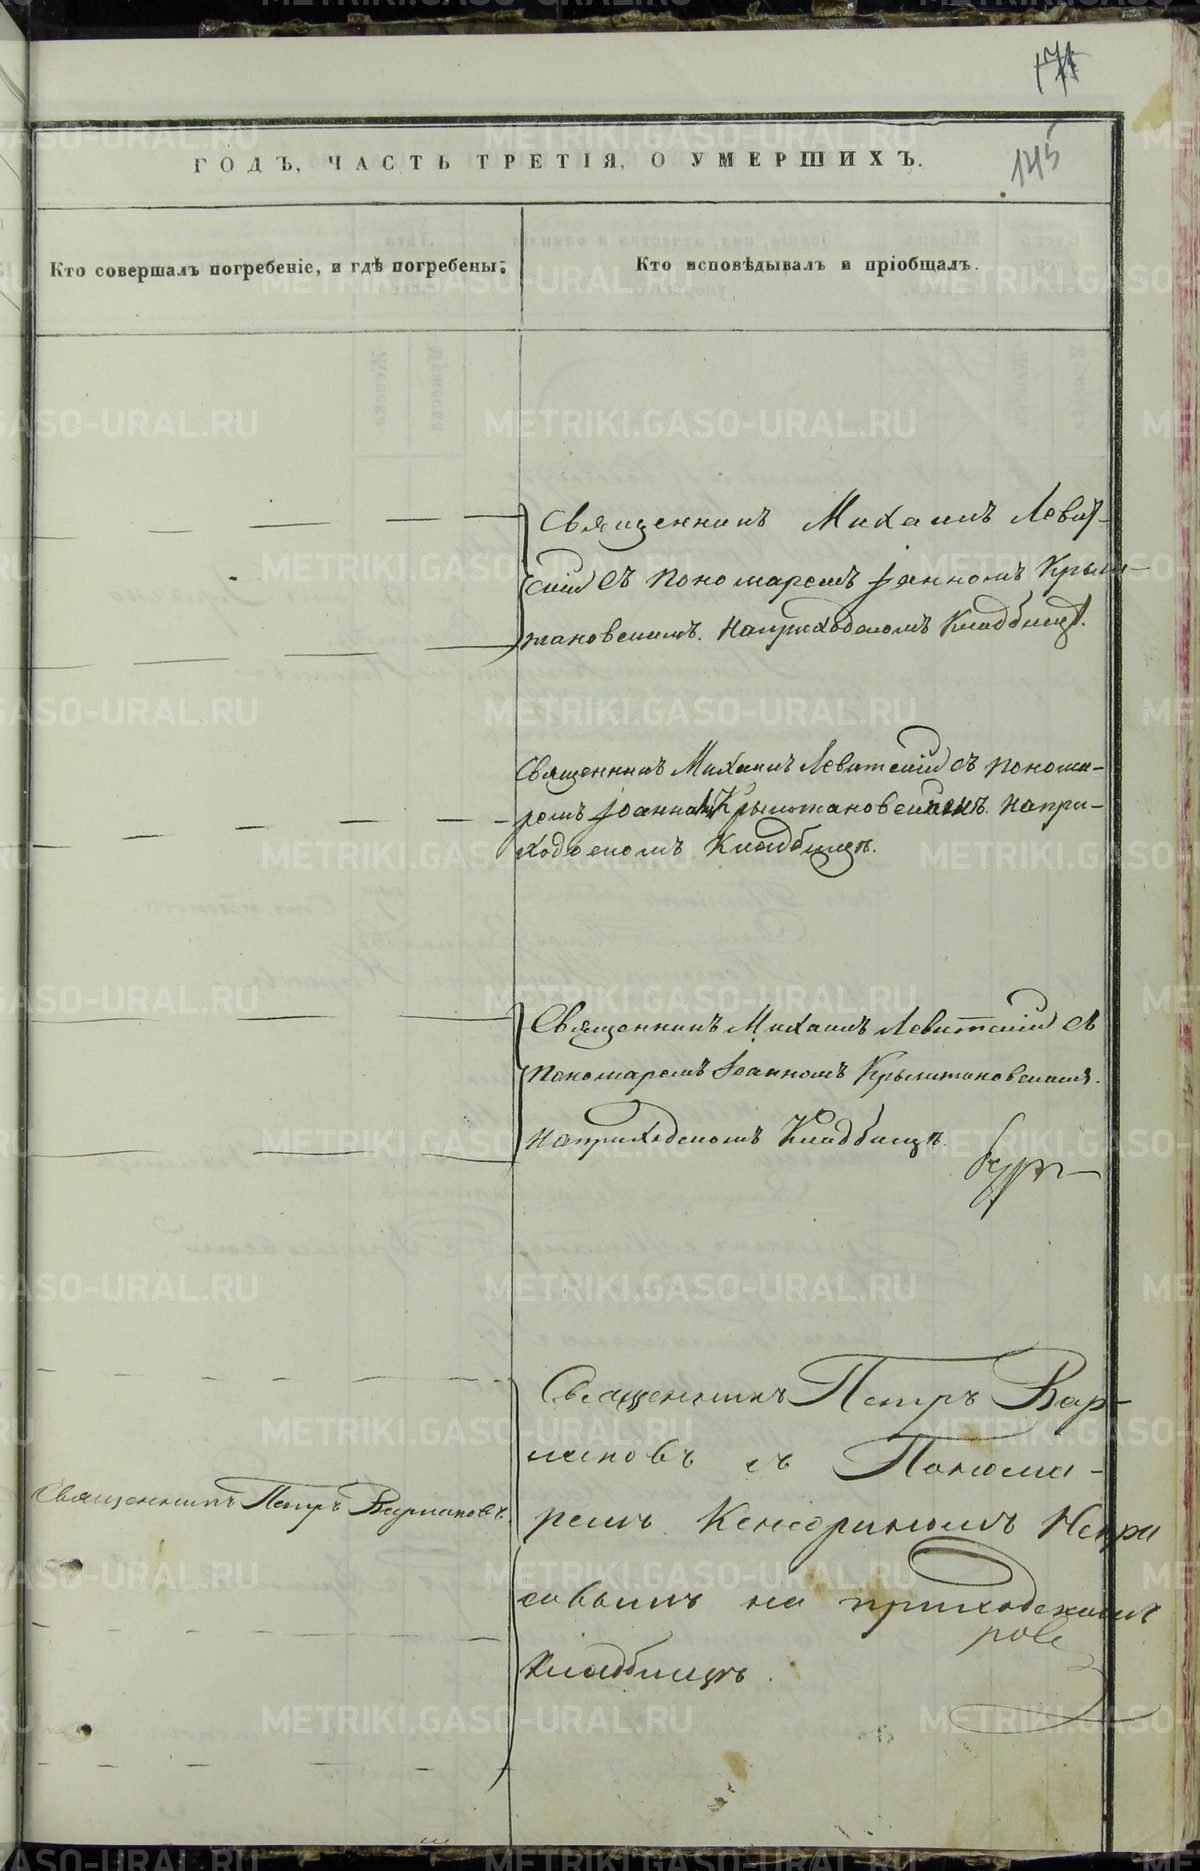 171
145
ГОДЪ, ЧАСТЬ ТРЕТІЯ, О УМЕРШИХЪ.
Кто совершалъ погребеніе, и гдѣ погребены:
Кто исповѣдывалъ и пріобщалъ.
Священникъ Михаилъ Левит-
скій съ Пономаремъ Іоанномъ Крыш-
тановскимъ. На приходскомъ Кладбищѣ.
Священникъ Михаилъ Левитскій съ Понома-
ремъ Іоанномъ Крыштановскимъ. На при-
ходскомъ Кладбищѣ.
Священникъ Михаилъ Левитскій съ
Пономаремъ Іоанномъ Крыштановскимъ.
На приходскомъ Кладбищѣ.
Священникъ Петръ Вар-
лаковъ съ Понома-
ремъ
на приходскомъ
Кладбищѣ.
Священникъ Петръ Варлаковъ.
METRIKI.GASO-URAL.RU